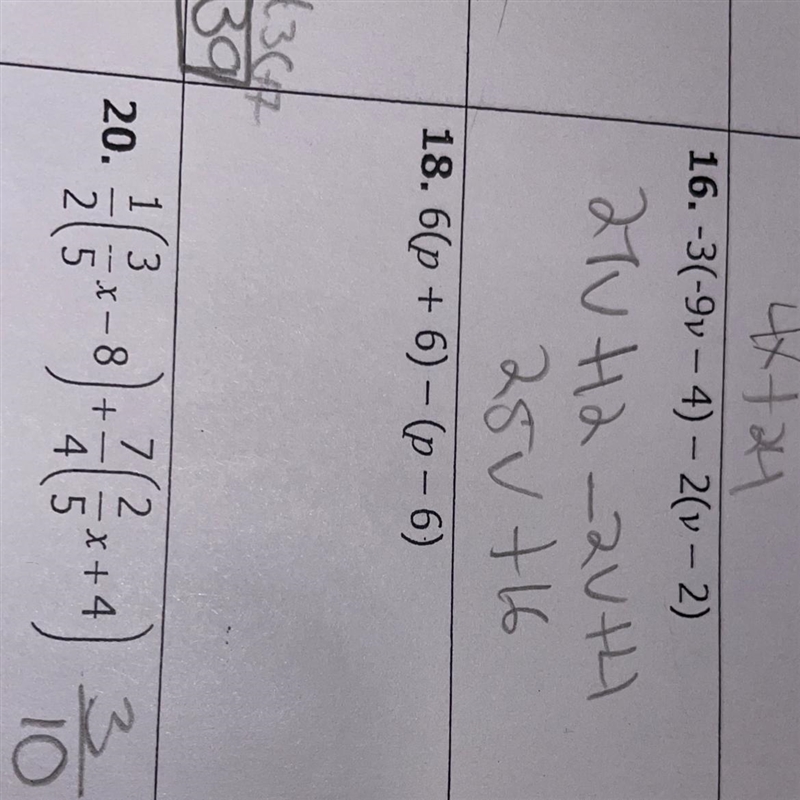 4x + 24
16. -3(-9v – 4) – 2(v – 2)
27v + 12 - 2v + 4
25v + 16
18. 6(p + 6) – (p – 6)
39
20. 1/2(3/5x – 8) + 7/4(2/5x + 4)
3/10